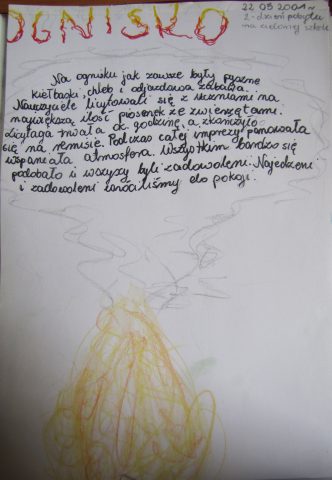 OGNISKO
22 05 2001r
2-dzień pobytu
na zielonej szkole
Na ognisku jak zawsze były pyszne
kiełbaski, chleb i odjazdowa zabawa.
Nauczyciele licytowali się z uczniami na
największą ilość piosenek ze zwierzętami.
Licytacja trwała ok. godzinę, a zkończyło
się na remisie. Podczas całej imprezy panowała
wspaniała atmosfera. Wszystkim bardzo się
podobało i wszyscy byli zadowoleni. Najedzeni
i zadowoleni wróciliśmy do pokoji.